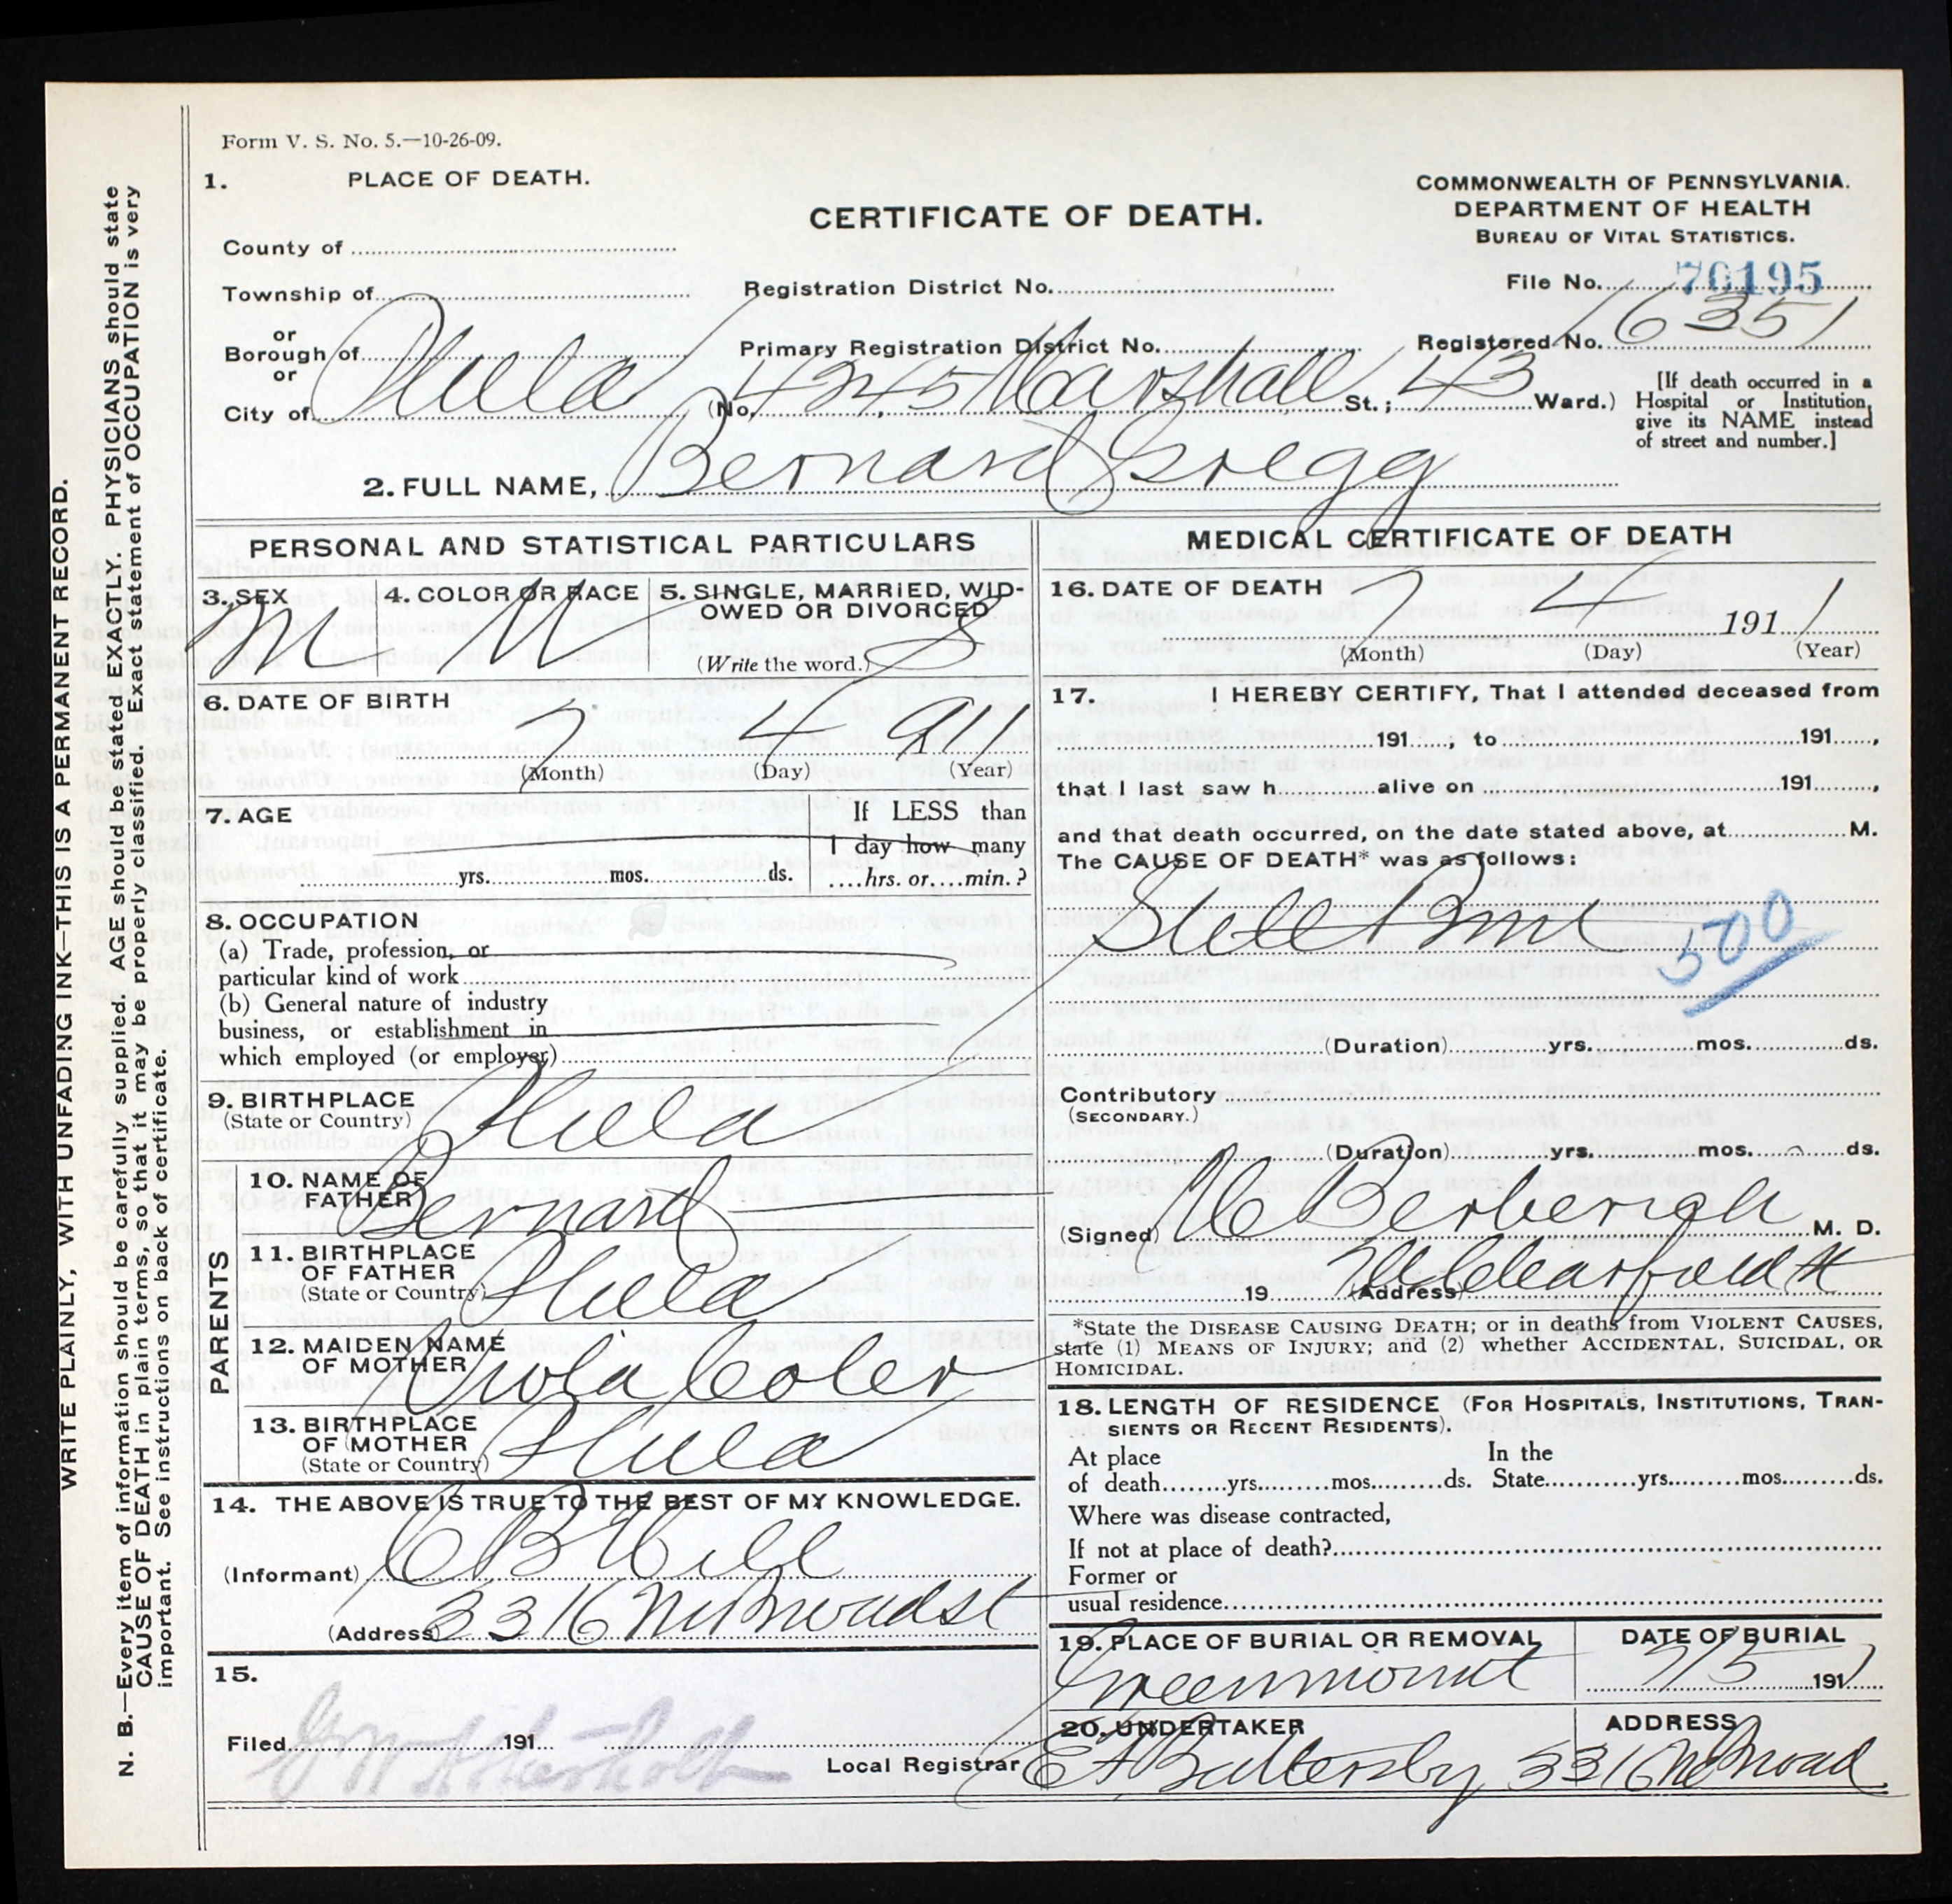 Form V. S. No. 5.—10-26-09.
1. PLACE OF DEATH.
COMMONWEALTH OF PENNSYLVANIA.
DEPARTMENT OF HEALTH
BUREAU OF VITAL STATISTICS.
CERTIFICATE OF DEATH.
County of
Township of
Registration District No.
File No. 70195
or
Borough of
Primary Registration District No.
Registered No. 16351
or
City of Phila (No. 4245 Marshall St.; 43 Ward.)
[If death occurred in a
Hospital or Institution,
give its NAME instead
of street and number.]
2. FULL NAME, Bernard Gregg
PERSONAL AND STATISTICAL PARTICULARS
3. SEX M
4. COLOR OR RACE W
5. SINGLE, MARRIED, WID-
OWED OR DIVORCED
(Write the word.) S
6. DATE OF BIRTH
7 4 911
(Month) (Day) (Year)
7. AGE
yrs. mos. ds.
If LESS than
1 day how many
....hrs. or....min.?
8. OCCUPATION
(a) Trade, profession, or
particular kind of work
(b) General nature of industry
business, or establishment in
which employed (or employer)
9. BIRTHPLACE
(State or Country) Phila
PARENTS
10. NAME OF
FATHER Bernard
11. BIRTHPLACE
OF FATHER
(State or Country) Phila
12. MAIDEN NAME
OF MOTHER Viola Coler
13. BIRTHPLACE
OF MOTHER
(State or Country) Phila
14. THE ABOVE IS TRUE TO THE BEST OF MY KNOWLEDGE.
(Informant) C B Hill
(Address) 3316 N Broad st
15.
Filed 191
Local Registrar
MEDICAL CERTIFICATE OF DEATH
16. DATE OF DEATH 7 4 1911
(Month) (Day) (Year)
17. I HEREBY CERTIFY, That I attended deceased from
191, to 191,
that I last saw h alive on 191,
and that death occurred, on the date stated above, at M.
The CAUSE OF DEATH* was as follows:
Still Born
500
(Duration) yrs. mos. ds.
Contributory
(SECONDARY.)
(Duration) yrs. mos. ds.
(Signed) M. D.
19 (Address) Clearfield st
*State the DISEASE CAUSING DEATH; or in deaths from VIOLENT CAUSES,
state (1) MEANS OF INJURY; and (2) whether ACCIDENTAL, SUICIDAL, OR
HOMICIDAL.
18. LENGTH OF RESIDENCE (FOR HOSPITALS, INSTITUTIONS, TRAN-
SIENTS OR RECENT RESIDENTS).
At place In the
of death yrs. mos. ds. State yrs. mos. ds.
Where was disease contracted,
If not at place of death?
Former or
usual residence
19. PLACE OF BURIAL OR REMOVAL
Greenmount
DATE OF BURIAL
7/5 1911
20. UNDERTAKER
E A Battersby
ADDRESS
3316 N Broad
WRITE PLAINLY, WITH UNFADING INK—THIS IS A PERMANENT RECORD.
N. B.—Every item of information should be carefully supplied. AGE should be stated EXACTLY. PHYSICIANS should state
CAUSE OF DEATH in plain terms, so that it may be properly classified. Exact statement of OCCUPATION is very
important. See instructions on back of certificate.